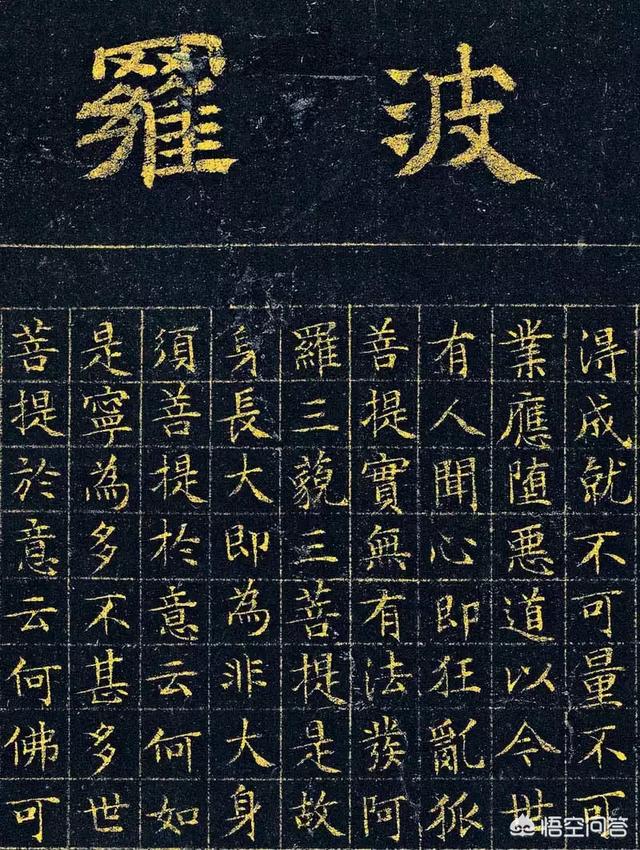 波羅
淂成就不可量不可
業應堕惡道以今世
有人聞心即狂亂狐
善提實無有法發阿
羅三藐三菩提是故
身長大即為非大身
須善提於意云何如
是寧為多不甚多世
菩提於意云何佛可
悟空问答